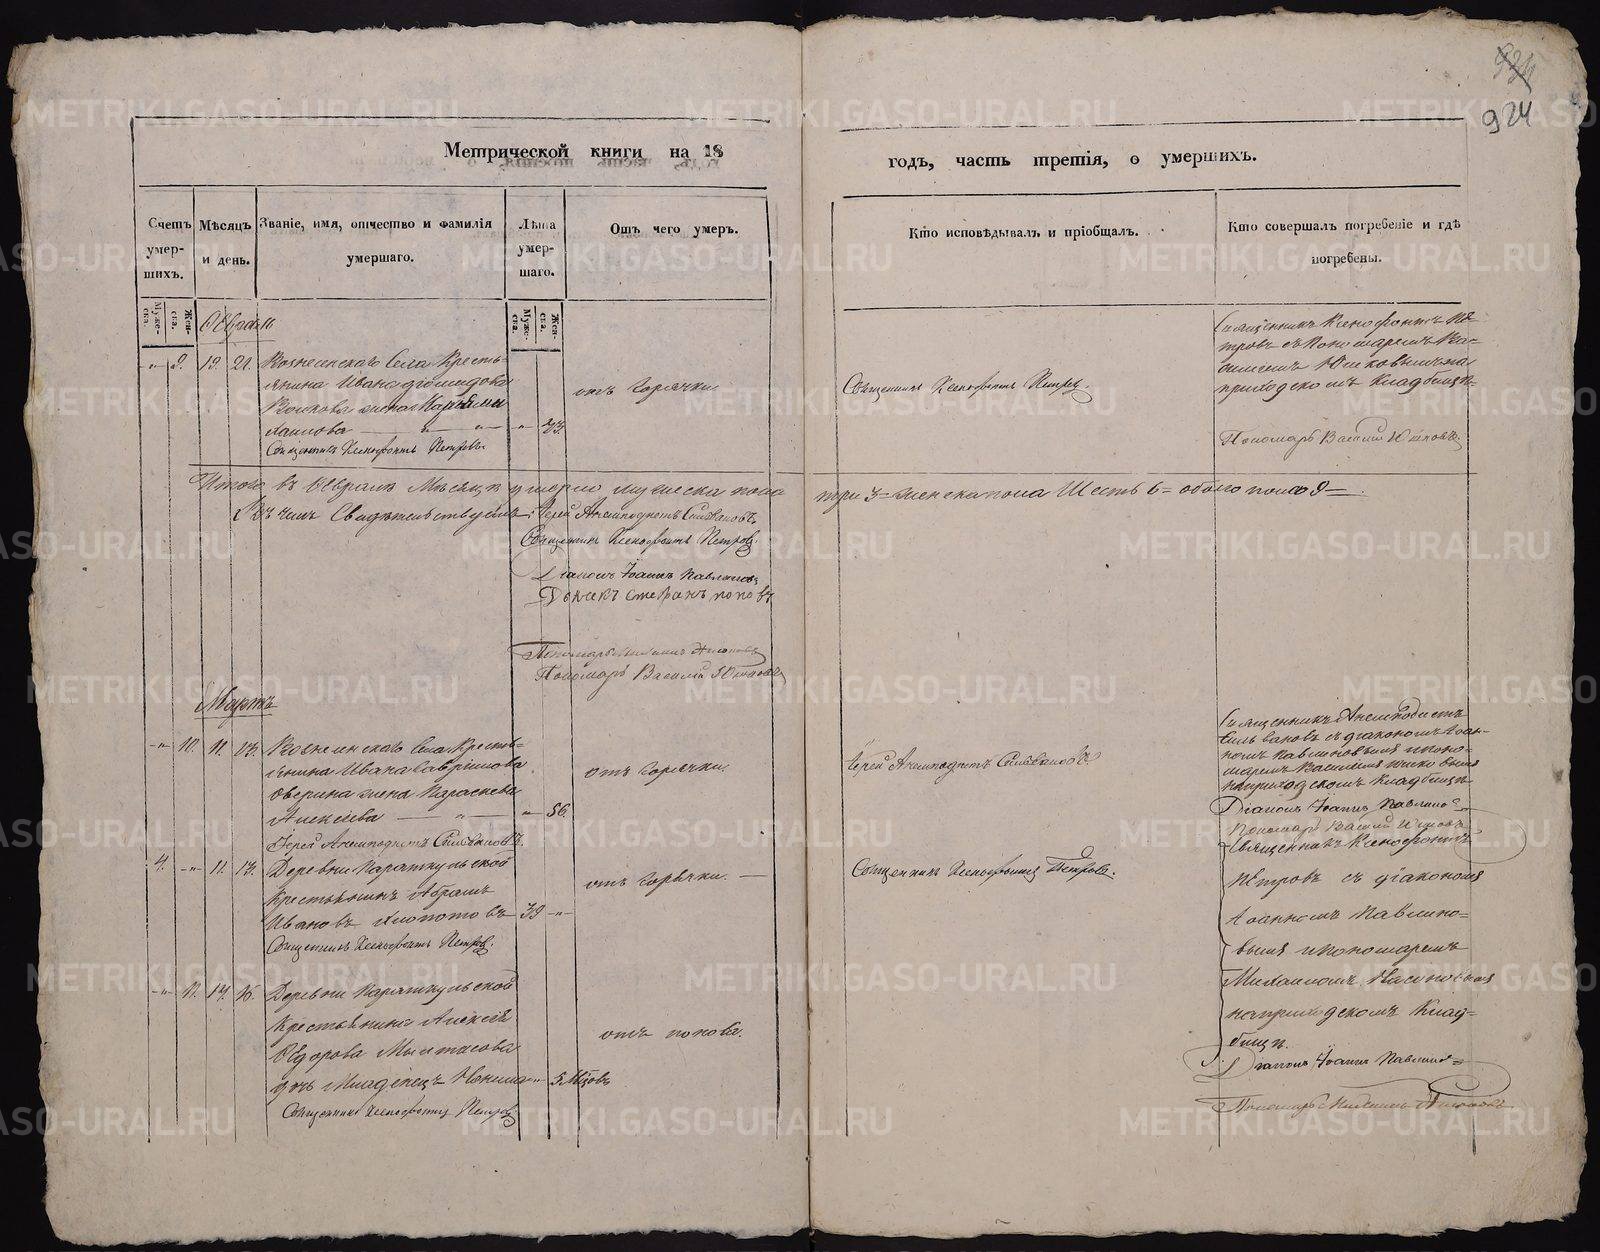 924
924
Метрической книги на 18
годъ, часть третія, о умершихъ.
Счетъ умер-шихъ.
Мѣсяцъ и день.
Званіе, имя, отчество и фамилія умершаго.
Лѣта умер-шаго.
Отъ чего умеръ.
Кто исповѣдывалъ и пріобщалъ.
Кто совершалъ погребеніе и гдѣ погребены.
Муже-ска.
Жен-ска.
Муже-ска.
Жен-ска.
Февраль
9. 19. 21. Вознесенскаго Села Кресть=
янина Ивана
жена
73.
Священникъ Ксенофонтъ Петровъ.
отъ горячки.
Священникъ Ксенофонтъ Петровъ.
Священникъ Ксенофонтъ Пе-
тровъ съ Пономаремъ Ва-
силіемъ на
приходскомъ кладбищѣ.
Пономарь Василій
Итого въ Февралѣ Мѣсяцѣ умерло мужеска пола
три 3= женска пола Шесть 6= обоего пола 9=.
Въ чемъ Свидѣтельствуемъ: Іерей Анемподистъ Сильвановъ
Священникъ Ксенофонтъ Петровъ.
Діаконъ Іоаннъ Павлиновъ
Дьячекъ Стефанъ Поповъ
Пономарь
Пономарь Василій
Мартъ
10. 11. 13. Вознесенскаго Села Кресть=
янина Ивана Гаврилова
жена Параскева
Алексѣева
56.
Іерей Анемподистъ Сильвановъ.
отъ горячки.
Іерей Анемподистъ Сильвановъ.
Священникъ Анемподистъ
Сильвановъ съ діакономъ Іоан-
номъ Павлиновымъ и поно-
маремъ Василіемъ
на приходскомъ кладбищѣ
Діаконъ Іоаннъ Павлино=
Пономарь Василій
4. 11. 13. Деревни Параткульской
Крестьянинъ Абрамъ
Ивановъ 39
Священникъ Ксенофонтъ Петровъ.
отъ горячки.
Священникъ Ксенофонтъ Петровъ.
Священникъ Ксенофонтъ
Петровъ съ діакономъ
Іоанномъ Павлино=
вымъ и пономаремъ
Михаиломъ
на приходскомъ Клад=
бищѣ.
Діаконъ Іоаннъ Павлино=
Пономарь
11. 14. 16. Деревни Параткульской
Крестьянина Алексѣя
Ѳедорова
дочь Младенецъ 5 Мцовъ
Священникъ Ксенофонтъ Петровъ.
отъ поноса.
METRIKI.GASO-URAL.RU